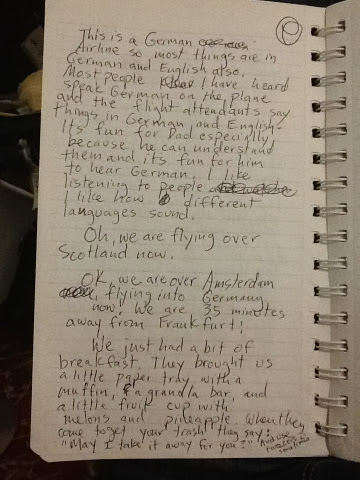 This is a German
P
Airline so most things are in
German and English also.
Most people I have heard
speak German on the plane
and the flight attendants say
things in German and English.
It's fun for Dad especially
because he can understand
them and it's fun for him
to hear German. I like
listening to people
I like how different
languages sound.
Oh, we are flying over
Scotland now.
OK, we are over Amsterdam
flying into Germany
now! We are 35 minutes
away from Frankfurt!
We just had a bit of
breakfast. They brought us
a little paper tray with a
muffin, a granola bar, and
a little fruit cup with
melons and pineapple. When they
come to get your trash they say:
"May I take it away for you?"